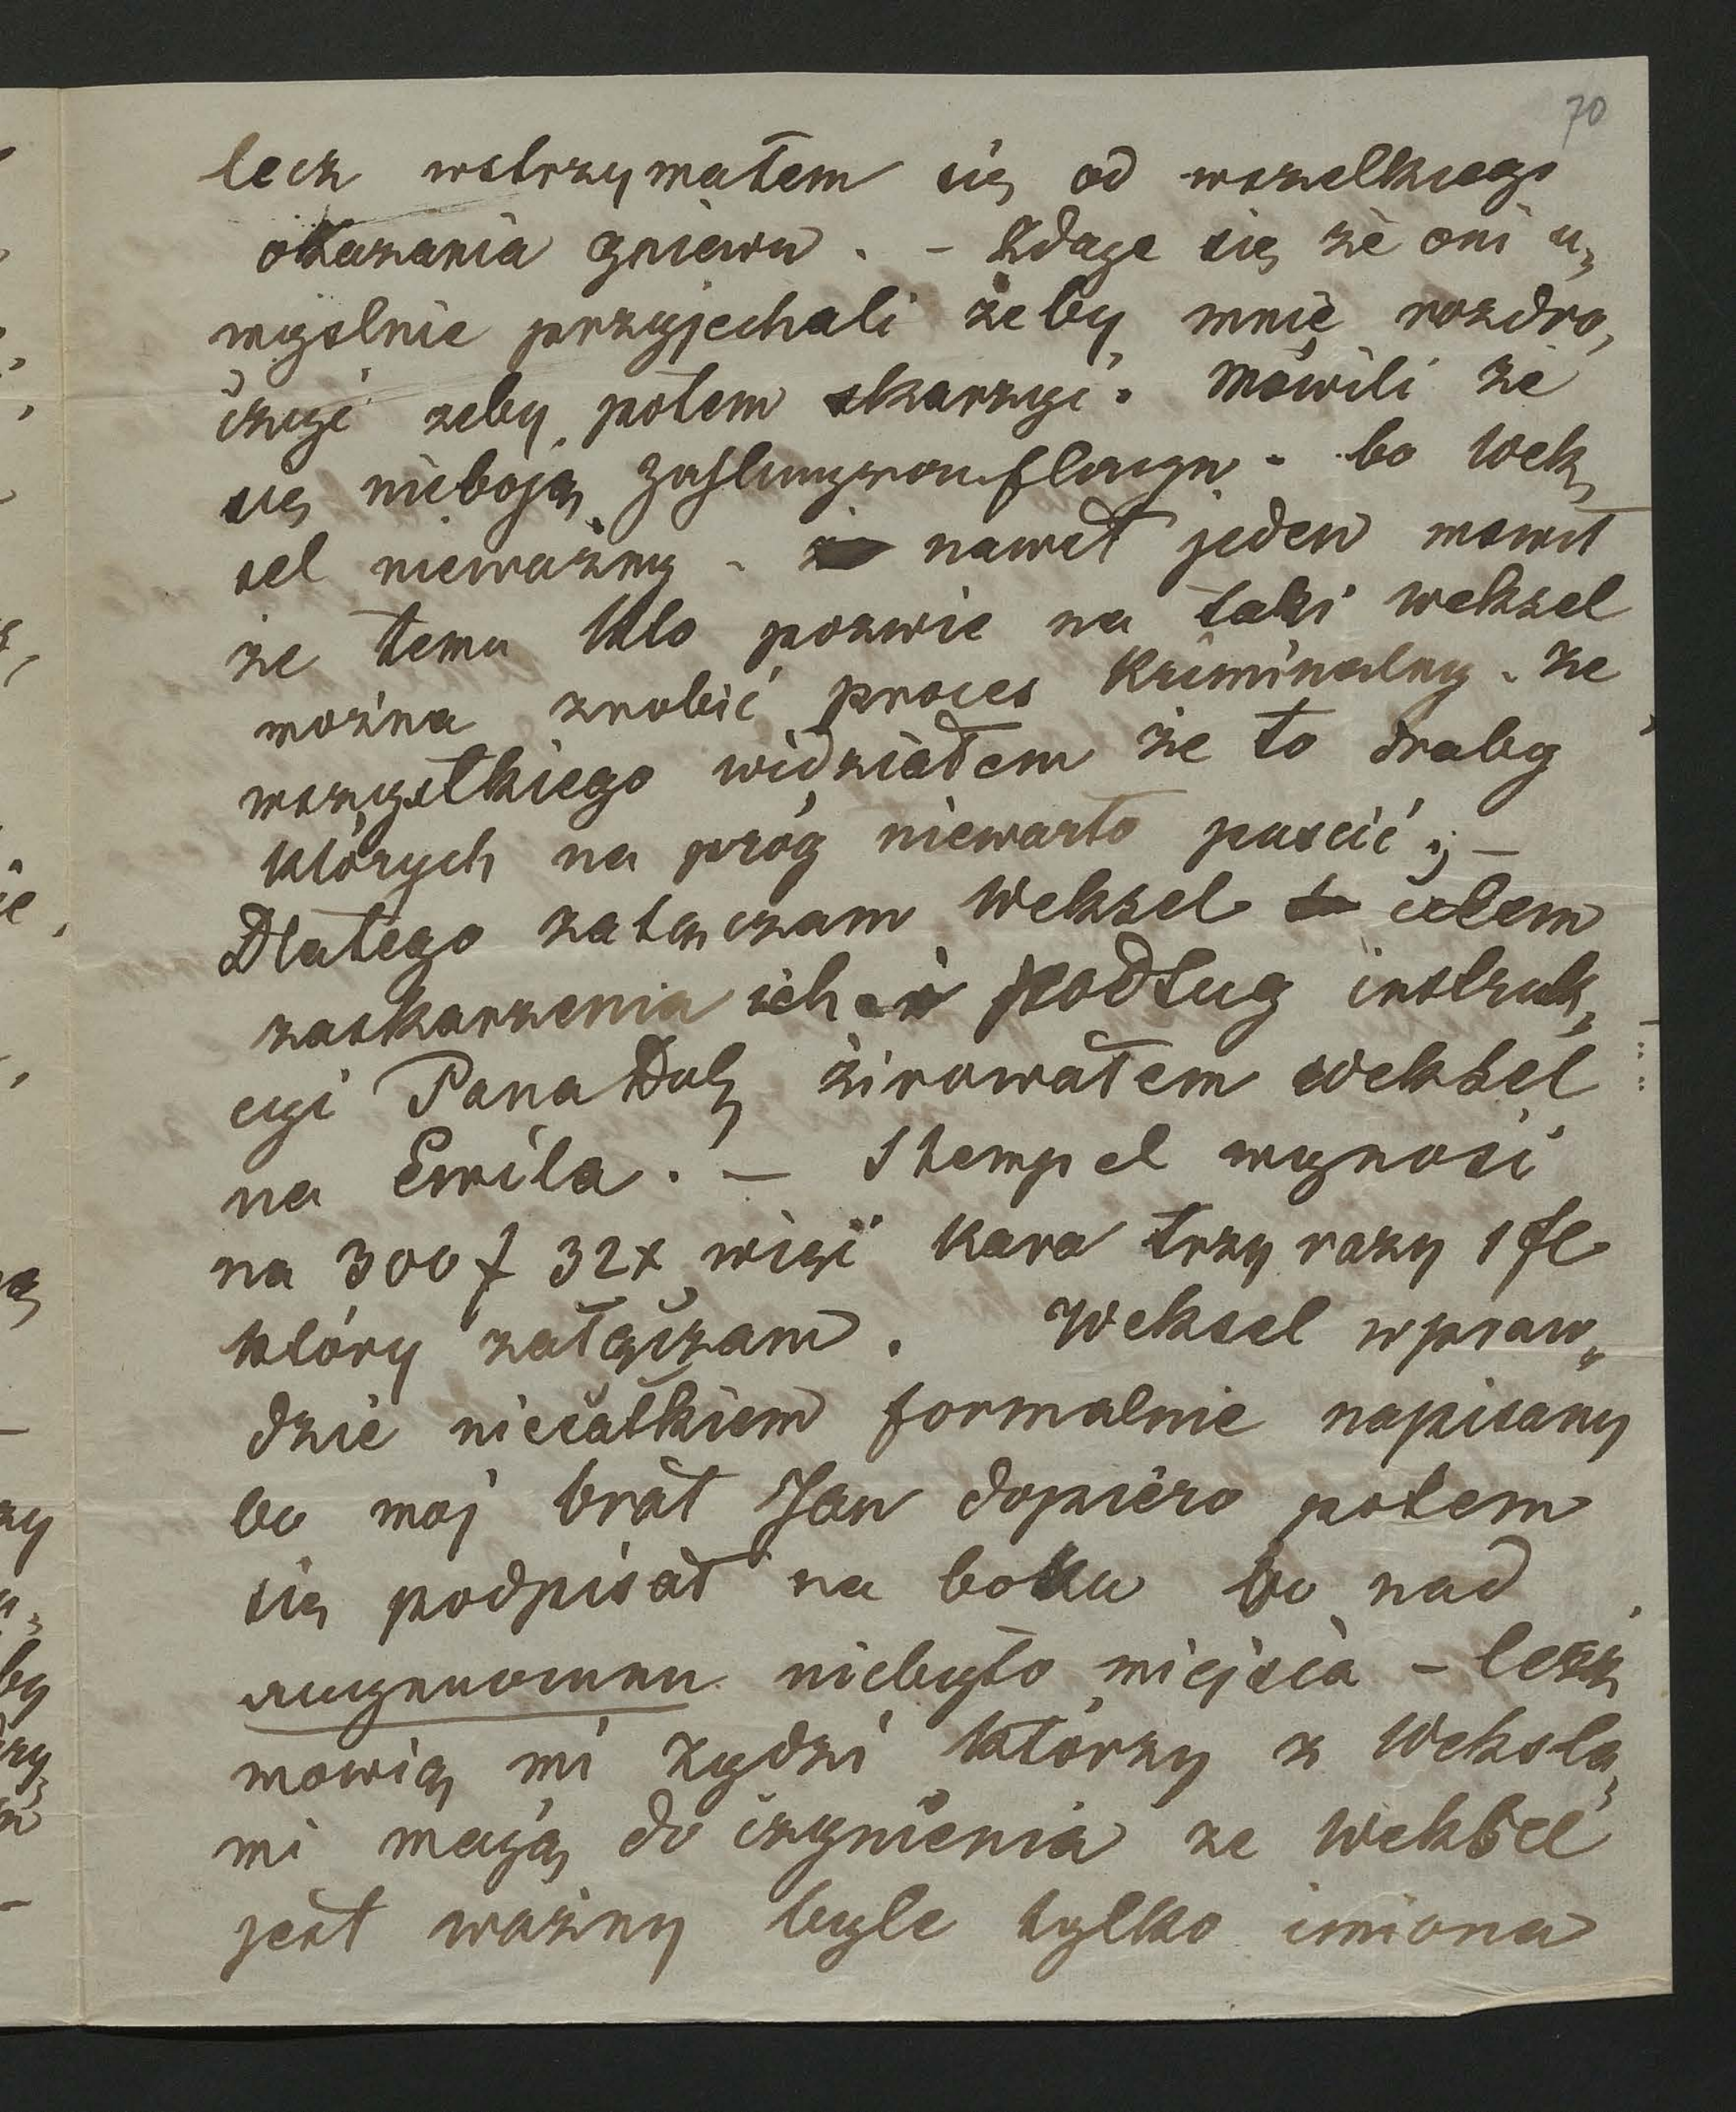 70
lecz wstrzymałem się od wszelkiego
okazania gniewu. - Zdaje się że oni u„
myslnie przyjechali żeby mnie rozdra„
żnyć zeby potem skarzyć. Mówili że
się nieboją Zahlungsauflagen - bo Wek„
sel nieważny - nawet jeden mowił
że temu kto pozwie na taki weksel
można zrobić proces kriminalny. Ze
wszystkiego widziałem że to draby
których na próg niewarto puscić; -
Dlatego załączam Weksel celem
zaskarzenia ich i podług instruk„
cyi Pana żirowałem weksel
na Emila. - Stempel wynosi
na 300 f 32x więc kara trzy razy 1 fl
który załączam. Weksel wpraw„
dzie niecałkiem formalnie napisany
bo moj brat Jan dopiero potem
się podpisał na boku bo nad
angenomen niebyło miejsca - lecz
mowią mi żydzi którzy z Weksla„
mi mają do czynienia ze Weksel
jest ważny byle tylko imiona